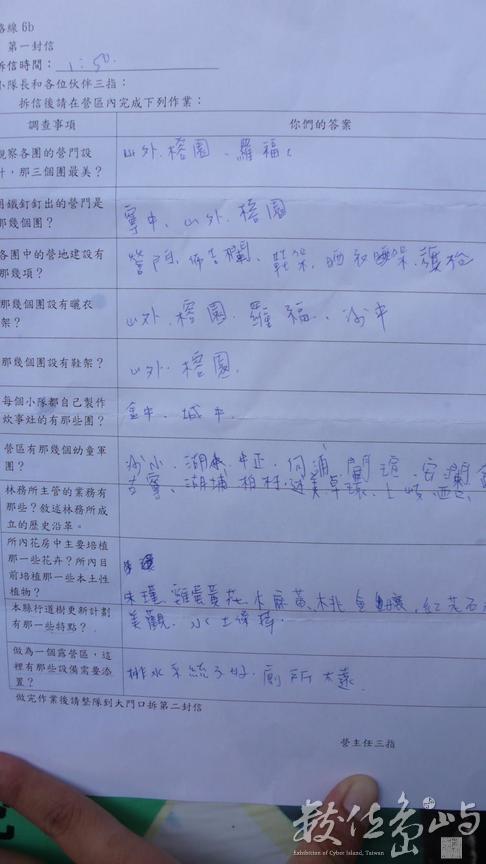 路線 6b
第一封信
拆信時間： 1：50.
小隊長和各位伙伴三指：
拆信後請在營區內完成下列作業：
調查事項
你們的答案
觀察各團的營門設
計，那三個團最美？
山外、榕園、羅福
用鐵釘釘出的營門是
那幾個團？
寧中、山外、榕園
各團中的營地建設有
那幾項？
營門、佈告欄、鞋架、晒衣
那幾個團設有曬衣
架？
山外、榕園、羅福、沙中
那幾個團設有鞋架？
山外、榕園.
每個小隊都自己製作
炊事灶的有那些團？
金中、城中.
營區有那幾個幼童軍
團？
沙小、湖小、中正、何浦、開瑄、安瀾
古寧、湖埔、柏村、述美、卓環、上岐、西口
林務所主管的業務有
那些？敘述林務所成
立的歷史沿革。
所內花房中主要培植
那一些花卉？所內目
前培植那一些本土性
植物？
朱瑾、雞蛋黃花、木麻黃、桃
本縣行道樹更新計劃
有那一些特點？
美觀、水土保持.
做為一個露營區，這
裡有那些設備需要添
置？
排水系統不好、廁所太遠.
做完作業後請整隊到大門口拆第二封信
營主任三指
數位島嶼
Exhibition of Cyber Island, Taiwan